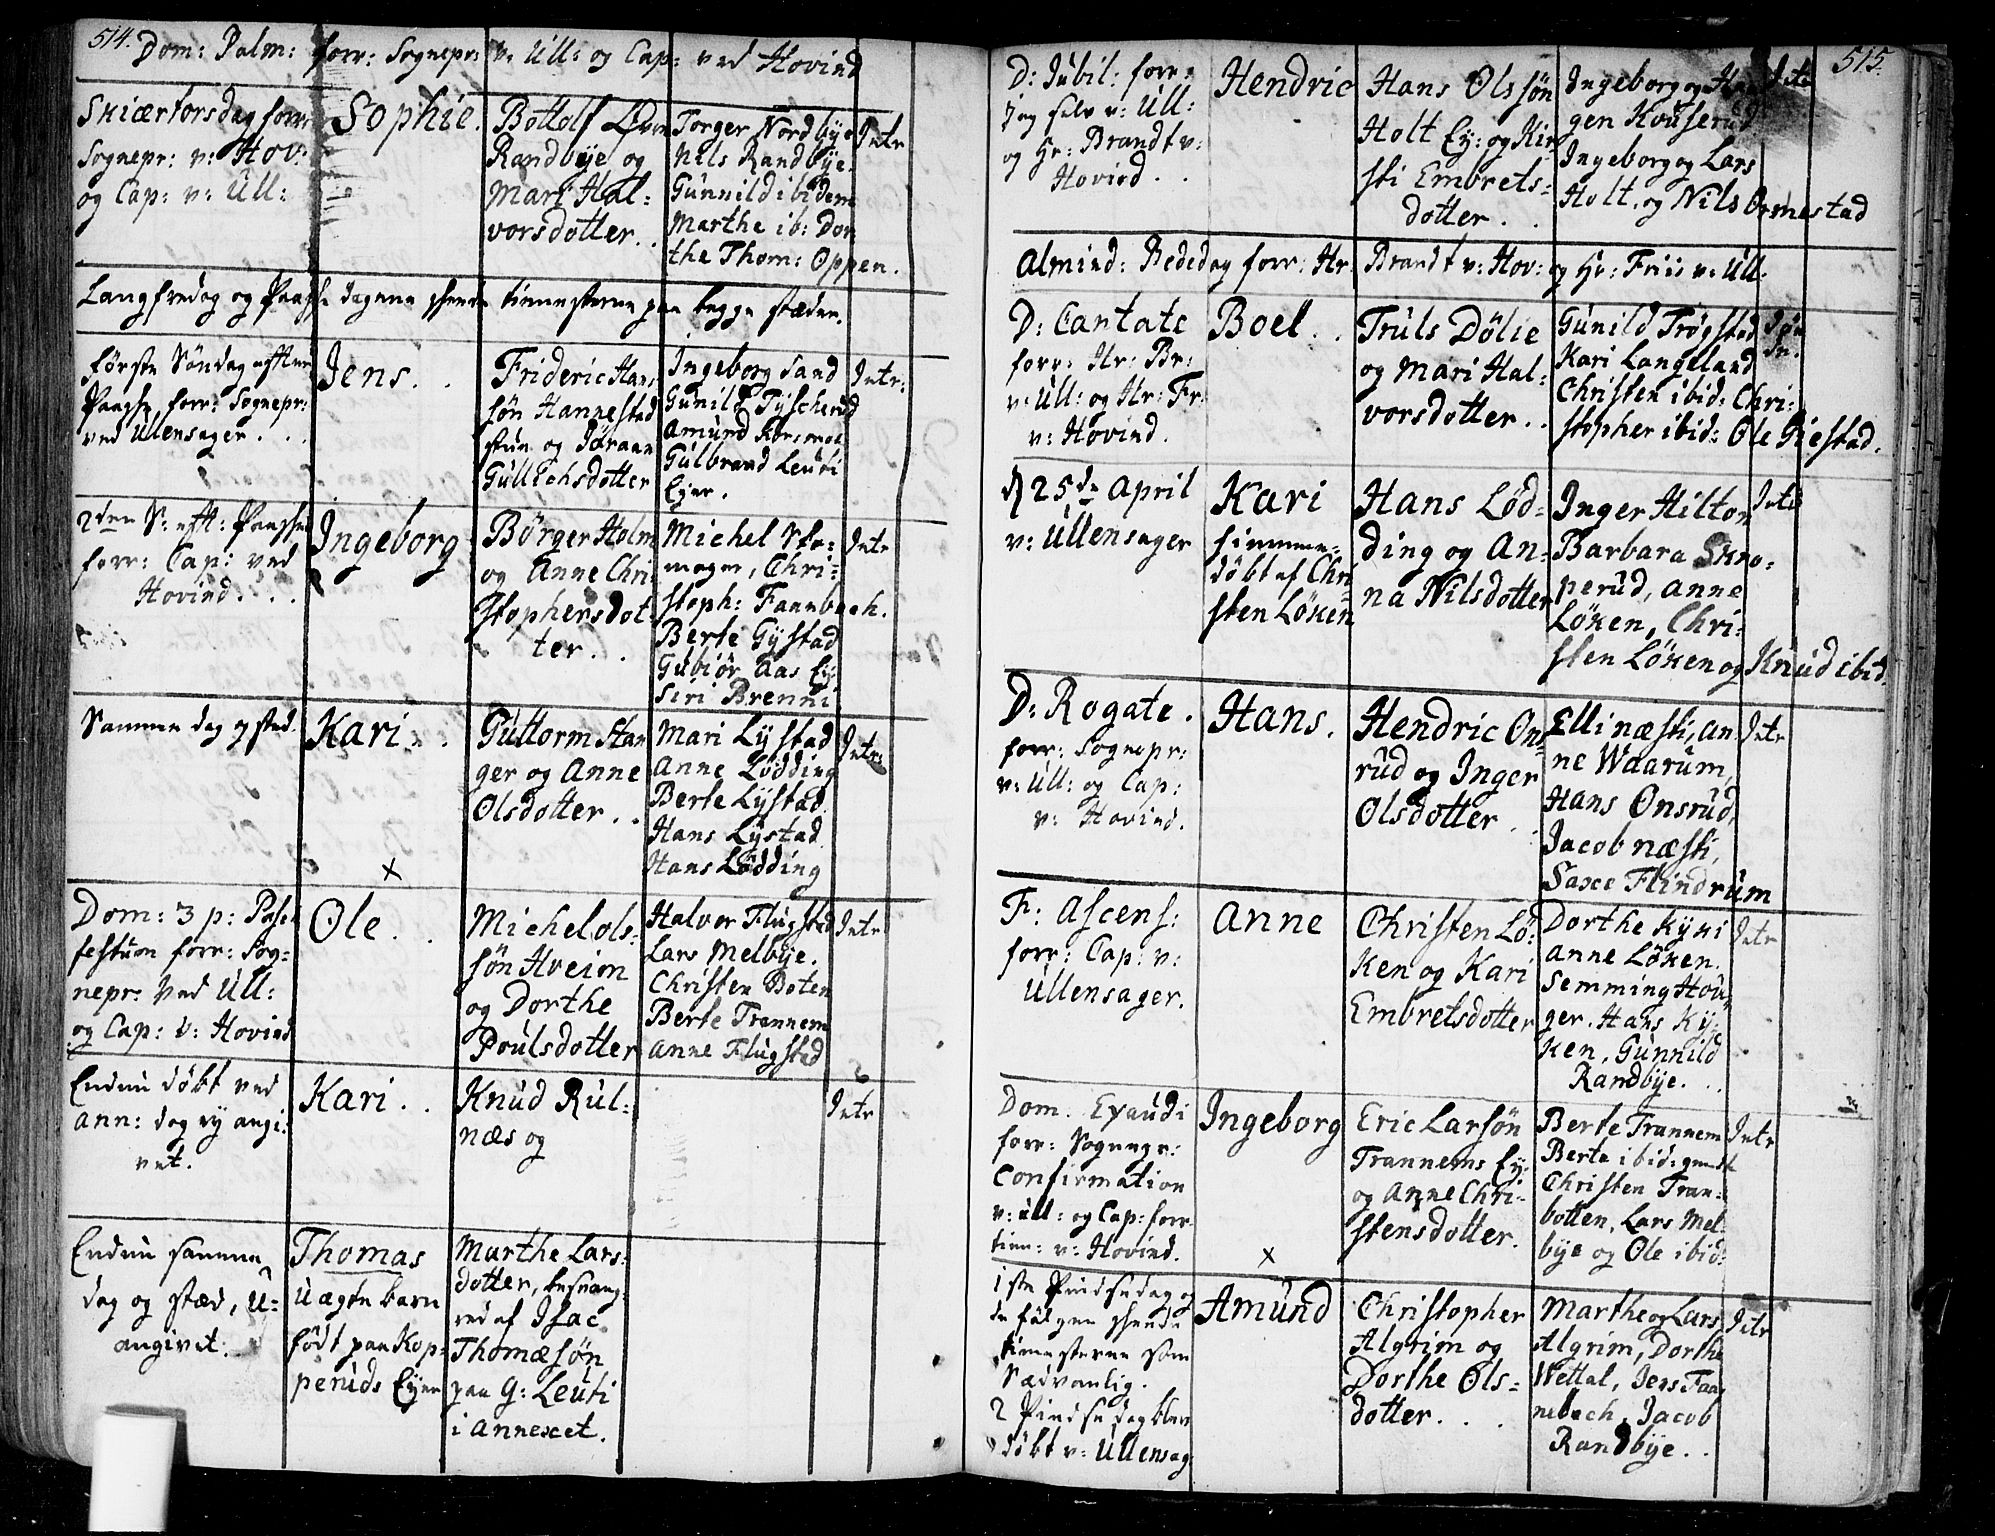 514. Dom: Palm: forr: Sognepr: v: Ull: og Cap: ved Hovind
Skiærtorsdag forr:
Sognepr: v: Hov:
og Cap: v: Ull:
Sophie.
Bottolf
Randbÿe og
Mari Hal=
vorsdotter.
Torger Nordbye
Nils Randbÿe.
Gunnild ibidem
Marthe ib: Dor
the Thom: Oppen.
Intr
Langfredag og Paaske dagene skeede tienesterne paa begge stæder.
første Søndag efter
Paaske, forr: Sognepr:
ved Ulensager. . .
Jens. .
Frideric Han
søn Hannestad
stun og Jöraan
Gulleichsdotter
Ingeborg Sand
Gunild Tÿscherud
Amund Korsmoe
Gulbrand Leuti
Eÿer.
Intr:
2den S: eft: Paaske
forr: Cap: ved
Hovind. . .
Ingeborg
Börger Holm
og Anne Chri
stophersdot=
ter. .
Michel
mager, Chri=
stoph: Fannbech.
Berte Gÿstad
Gubiör Aas Eÿ
Siri Brenni
Intr
Samme dag og sted.
Kari. .
Guttorm Stan
ger og Anne
Olsdotter. .
Mari Lÿstad
Anne Lödding
Berte Lÿstad
Hans Lÿstad
Hans Lödding
Intr:
×
Dom: 3 p: Pasc
festum forr: Sog=
nepr: ved Ull:
og Cap: v: Hovind
Ole. .
Michel ols=
søn Hveim
og Dorthe
Poulsdotter
Halvor Flugstad
Lars Melbÿe.
Christen Boten
Berte Trannem
Anne Flugstad
Intr
Endnu döbt ved
ann: dag ej angi=
vet.
Kari. .
Knud Rul=
næs og
Intr
Endnu samme
dag og stæd, u=
angivet:
Thomas
Uægte barn
födt paa Kop=
peruds Eÿer
Marthe Lars=
dotter, besvang=
red af Isac
Thomæsøn
paa g: Leuti
i annexet.
515.
D: Jubil: forr:
jeg selv v: Ull:
og Hr: Brandt v:
Hovind. .
Hendric
Hans Olssøn
Holt Eÿ: og Kir
sti Embrets=
dotter. .
Ingeborg og
gen Kouserud
Ingeborg og Lars
Holt, og Nils Ormestad
Almind: Bededag forr: Hr: Brandt v: Hov: og Hr: Friis v: Ull:
D: Cantate
forr: Hr: Br:
v: Ull: og Hr: Fr:
v: Hovind.
Boel. .
Truls Dölie
og Mari Hal=
vorsdotter. .
Gunild Trögstad
Kari Langeland
Christen ibid: Chri=
stopher ibid: Ole Giestad.
d 25de April
v: Ullensager
Kari
hiemme=
döbt af Chri
sten Löken
Hans Löd=
ding og An=
na Nilsdotter
Inger Hilton
Barbara Skno=
perud, Anne
Löken, Chri=
sten Löken og Knud ibid.
Intr
D: Rogate.
forr: Sognepr:
v: Ull: og Cap:
v: Hovind.
Hans.
Hendric Ons
rud og Inger
Olsdotter. .
Elli næsti, An
ne Waarum,
Hans Onsrud,
Jacob næsti,
Saxe Flindrum
Intr
F: Ascens:
forr: Cap: v:
Ullensager.
Anne
Christen Lö=
ken og Kari
Embretsdotter
Dorthe Kyki
Anne Löken.
Semming Hov
ger. Hans Ky=
ken, Gunnild
Randbÿe. . .
Intr
Dom. Exaudi
forr: Sognepr:
Confirmation
v: Ull: og Cap: forr
tien: v: Hovind.
Ingeborg
Eric Larsön
Trannems Eÿ:
og Anne Chri=
stensdotter.
Berte Trannem
Berte ibid:
Christen Tran=
botten, Lars Mel
bÿe og Ole ibid:
Intr
×
1ste Pindsedag og
de fölgen skeede
tienesterne som
Sædvanlig.
2 Pindse dag blev
döbt v: Ullensag
Amund
Christopher
Algrim og
Dorthe Ols=
dotter. . .
Marthe og Lars
Algrim, Dorthe
Wettal, Jens Fan
nebech, Jacob
Randbÿe. .
Intr